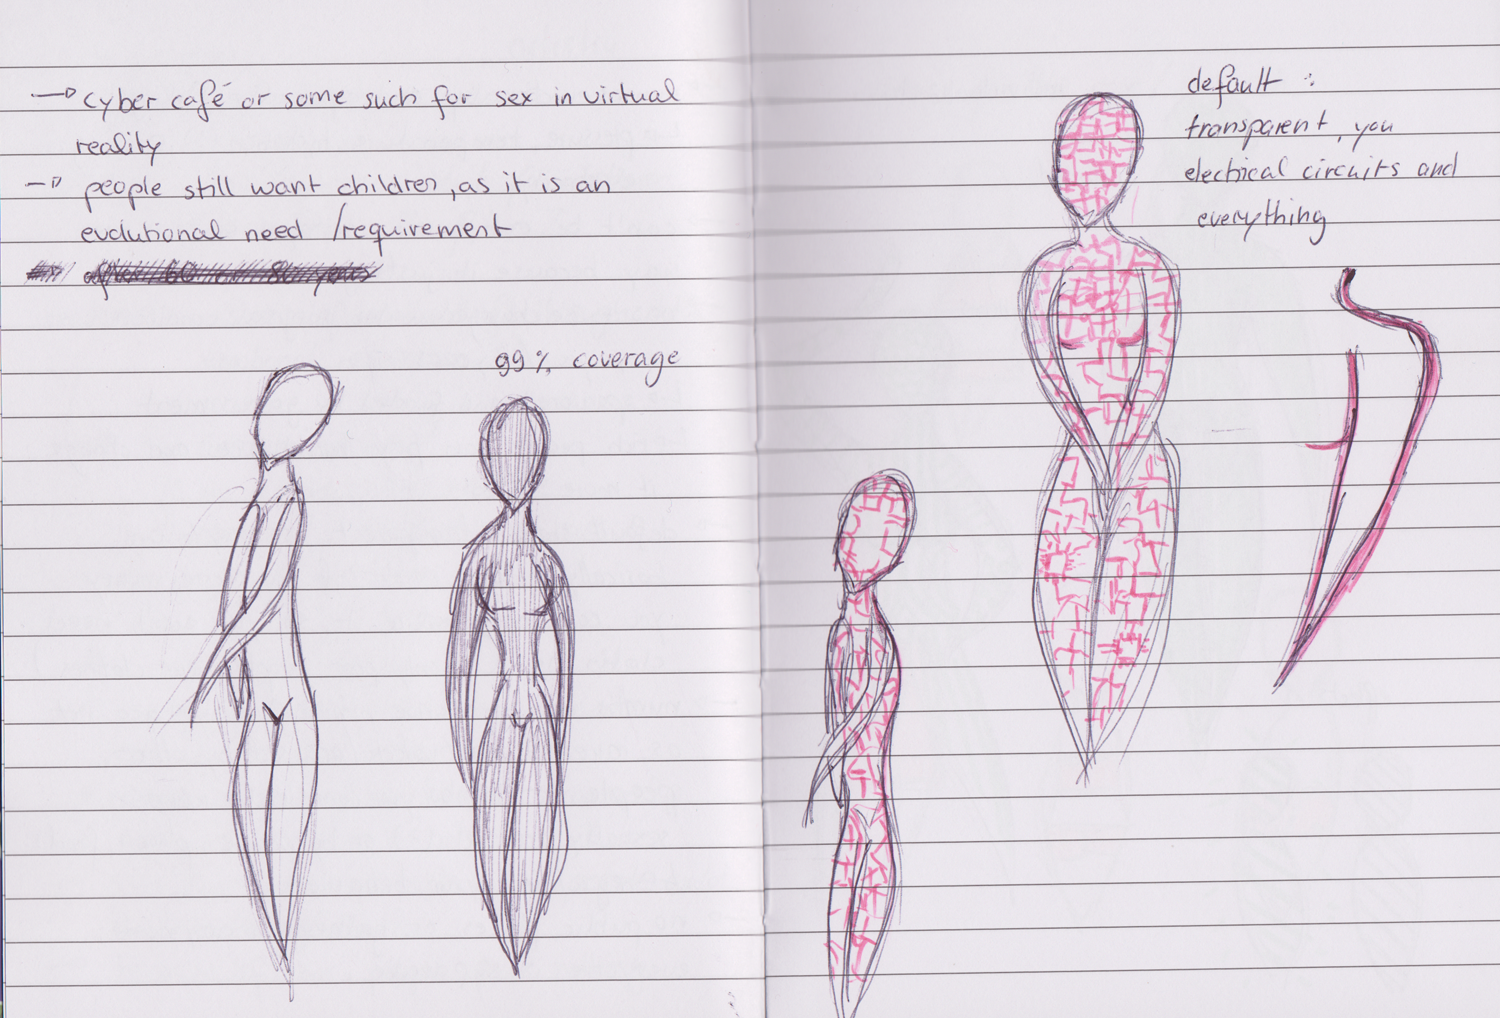 cyber café or some such for sex in virtual
reality
people still want children, as it is an
evolutional need /requirement
after 60 or 80 years
99% coverage
default :
transparent, you
electrical circuits and
everything